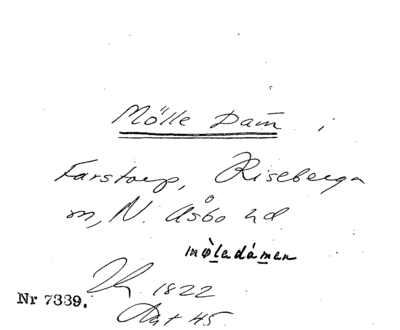 Mölle Dam̄
Farstorp, Riseberga
N. Åsbo hd
møledámen
1822
Nr 7339.
45.